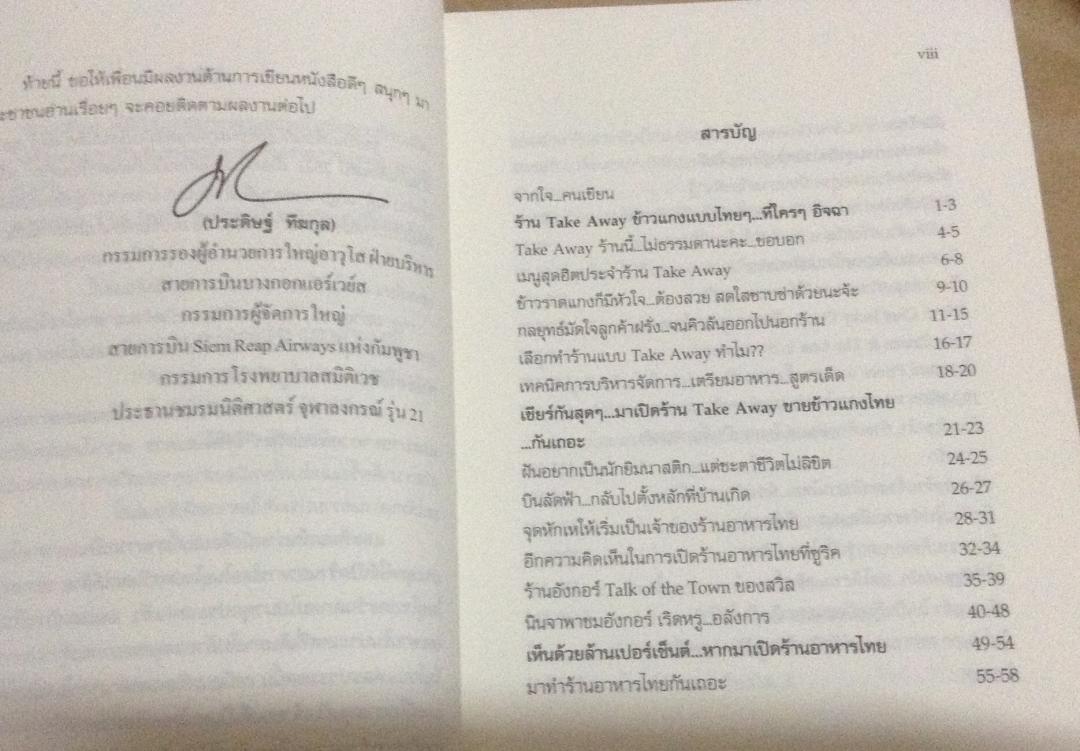 ท้ายนี้ ขอให้เพื่อนมีผลงานด้านการเขียนหนังสือดีๆ สนุกๆ มา
ะชาชนอ่านเรื่อยๆ จะคอยติดตามผลงานต่อไป
(ประดิษฐ์ ทีฆกุล)
กรรมการรองผู้อำนวยการใหญ่อาวุโส ฝ่ายบริหาร
สายการบินบางกอกแอร์เวย์ส
กรรมการผู้จัดการใหญ่
สายการบิน Siem Reap Airways แห่งกัมพูชา
กรรมการโรงพยาบาลสมิติเวช
ประธานชมรมนิติศาสตร์ จุฬาลงกรณ์ รุ่น 21
viii
สารบัญ
จากใจ...คนเขียน
ร้าน Take Away ข้าวแกงแบบไทยๆ...ที่ใครๆ อิจฉา 1-3
Take Away ร้านนี้...ไม่ธรรมดานะคะ...ขอบอก 4-5
เมนูสุดฮิตประจำร้าน Take Away 6-8
ข้าวราดแกงก็มีหัวใจ...ต้องสวย สดใสซาบซ่าด้วยนะจ้ะ 9-10
กลยุทธ์มัดใจลูกค้าฝรั่ง...จนคิวล้นออกไปนอกร้าน 11-15
เลือกทำร้านแบบ Take Away ทำไม?? 16-17
เทคนิคการบริหารจัดการ...เตรียมอาหาร...สูตรเด็ด 18-20
เชียร์กันสุดๆ...มาเปิดร้าน Take Away ขายข้าวแกงไทย
...กันเถอะ 21-23
ฝันอยากเป็นนักยิมนาสติก...แต่ชะตาชีวิตไม่ลิขิต 24-25
บินลัดฟ้า...กลับไปตั้งหลักที่บ้านเกิด 26-27
จุดหักเหให้เริ่มเป็นเจ้าของร้านอาหารไทย 28-31
อีกความคิดเห็นในการเปิดร้านอาหารไทยที่ซูริค 32-34
ร้านอังกอร์ Talk of the Town ของสวิส 35-39
นินจาพาชมอังกอร์ เริดหรู...อลังการ 40-48
เห็นด้วยล้านเปอร์เซ็นต์...หากมาเปิดร้านอาหารไทย 49-54
มาทำร้านอาหารไทยกันเถอะ 55-58